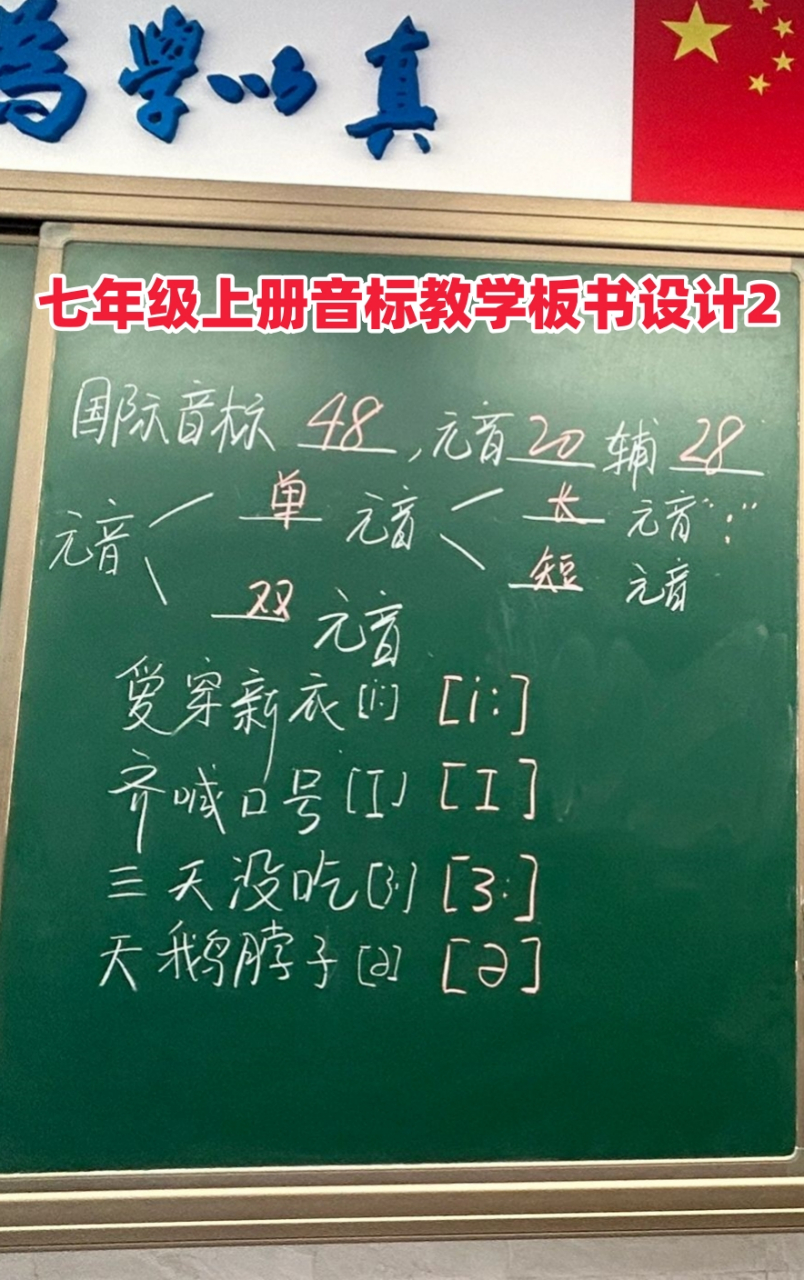 为学以真
七年级上册音标教学板书设计2
国际音标 48 , 元音 20 辅 28
元音 单 元音 长 元音“:”
短 元音
双 元音
爱穿新衣[i:] [i:]
齐喊口号[I] [I]
三天没吃[3:] [3:]
天鹅脖子[ə] [ə]